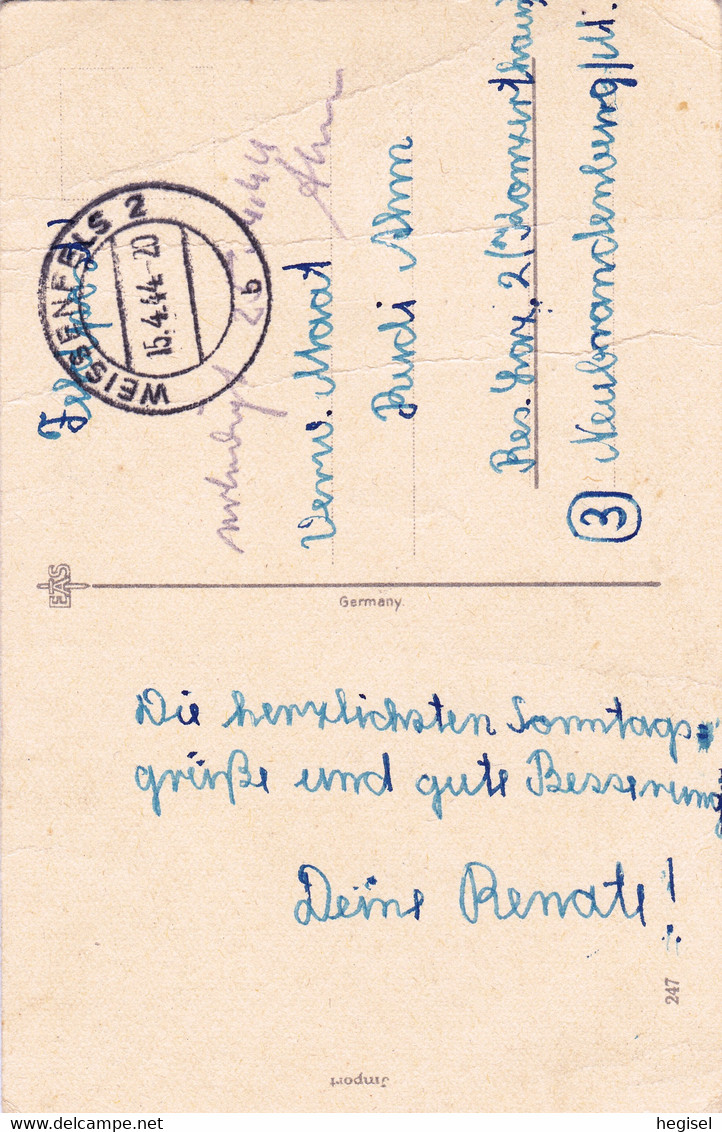 Feldpost
WEISSENFELS 2
15.4.44-20
b
Verw. Maat
Rudi Ahm
Res. Laz. 2 (Konzerthaus)
③ Neubrandenburg/M.
EAS
Germany
Die herzlichsten Sonntags=
grüße und gute Besserung
Deine Renate!
247
Import
delcampe.net
hegisel